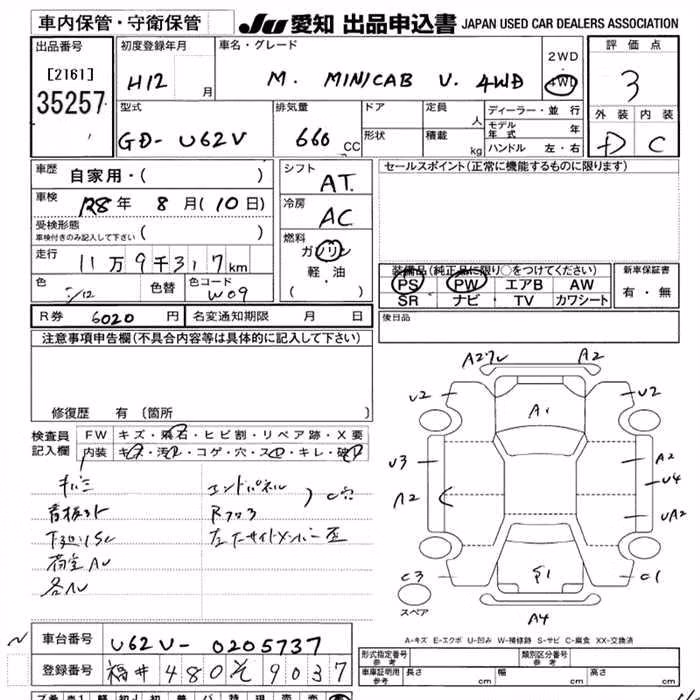 車内保管・守衛保管 JU 愛知 出品申込書 JAPAN USED CAR DEALERS ASSOCIATION
出品番号 初度登録年月 車名・グレード 2WD・4WD 評価点
[2161] H12 月 M. MINICAB V. 4WD 3
35257
型式 排気量 ドア 定員 人 ディーラー・並行 外装 内装
GD- U62V 660 CC 形状 積載 kg モデル年式 年 D C
ハンドル 左・右
車歴 自家用・( ) シフト AT. セールスポイント(正常に機能するものに限ります)
車検 R8年 8月(10日) 冷房 AC
受検形態 車検付きのみ記入して下さい ( )
燃料 ガソリン 軽・油 ( )
走行 11万9千317km
装備品(純正品に限り○をつけてください) 新車保証書
色 色替 色コード W09 PS PW エアB AW 有・無
SR ナビ TV カワシート
R券 6020円 名変通知期限 月 日 後日品
注意事項申告欄(不具合内容等は具体的に記入して下さい)
修復歴 有 (箇所 )
検査員記入欄 FW キズ・飛石・ヒビ割・リペア跡・X要
内装 キズ・汚れ・コゲ・穴・スレ・キレ・破れ
キバミ エンドパネル
下廻りS
各ル
A2 A2
U2 A1 U2
U3 A2
A2 U4
UA2
C3 S1 C1
スペア
A4
A-キズ E-エクボ U-凹み W-補修跡 S-サビ C-腐食 XX-交換済
車台番号 U62V-0205737
登録番号 福井 480 そ 9037
形式指定番号 参考 類別区分番号 参考
車庫証明用 参考 長さ cm 幅 cm 高さ cm